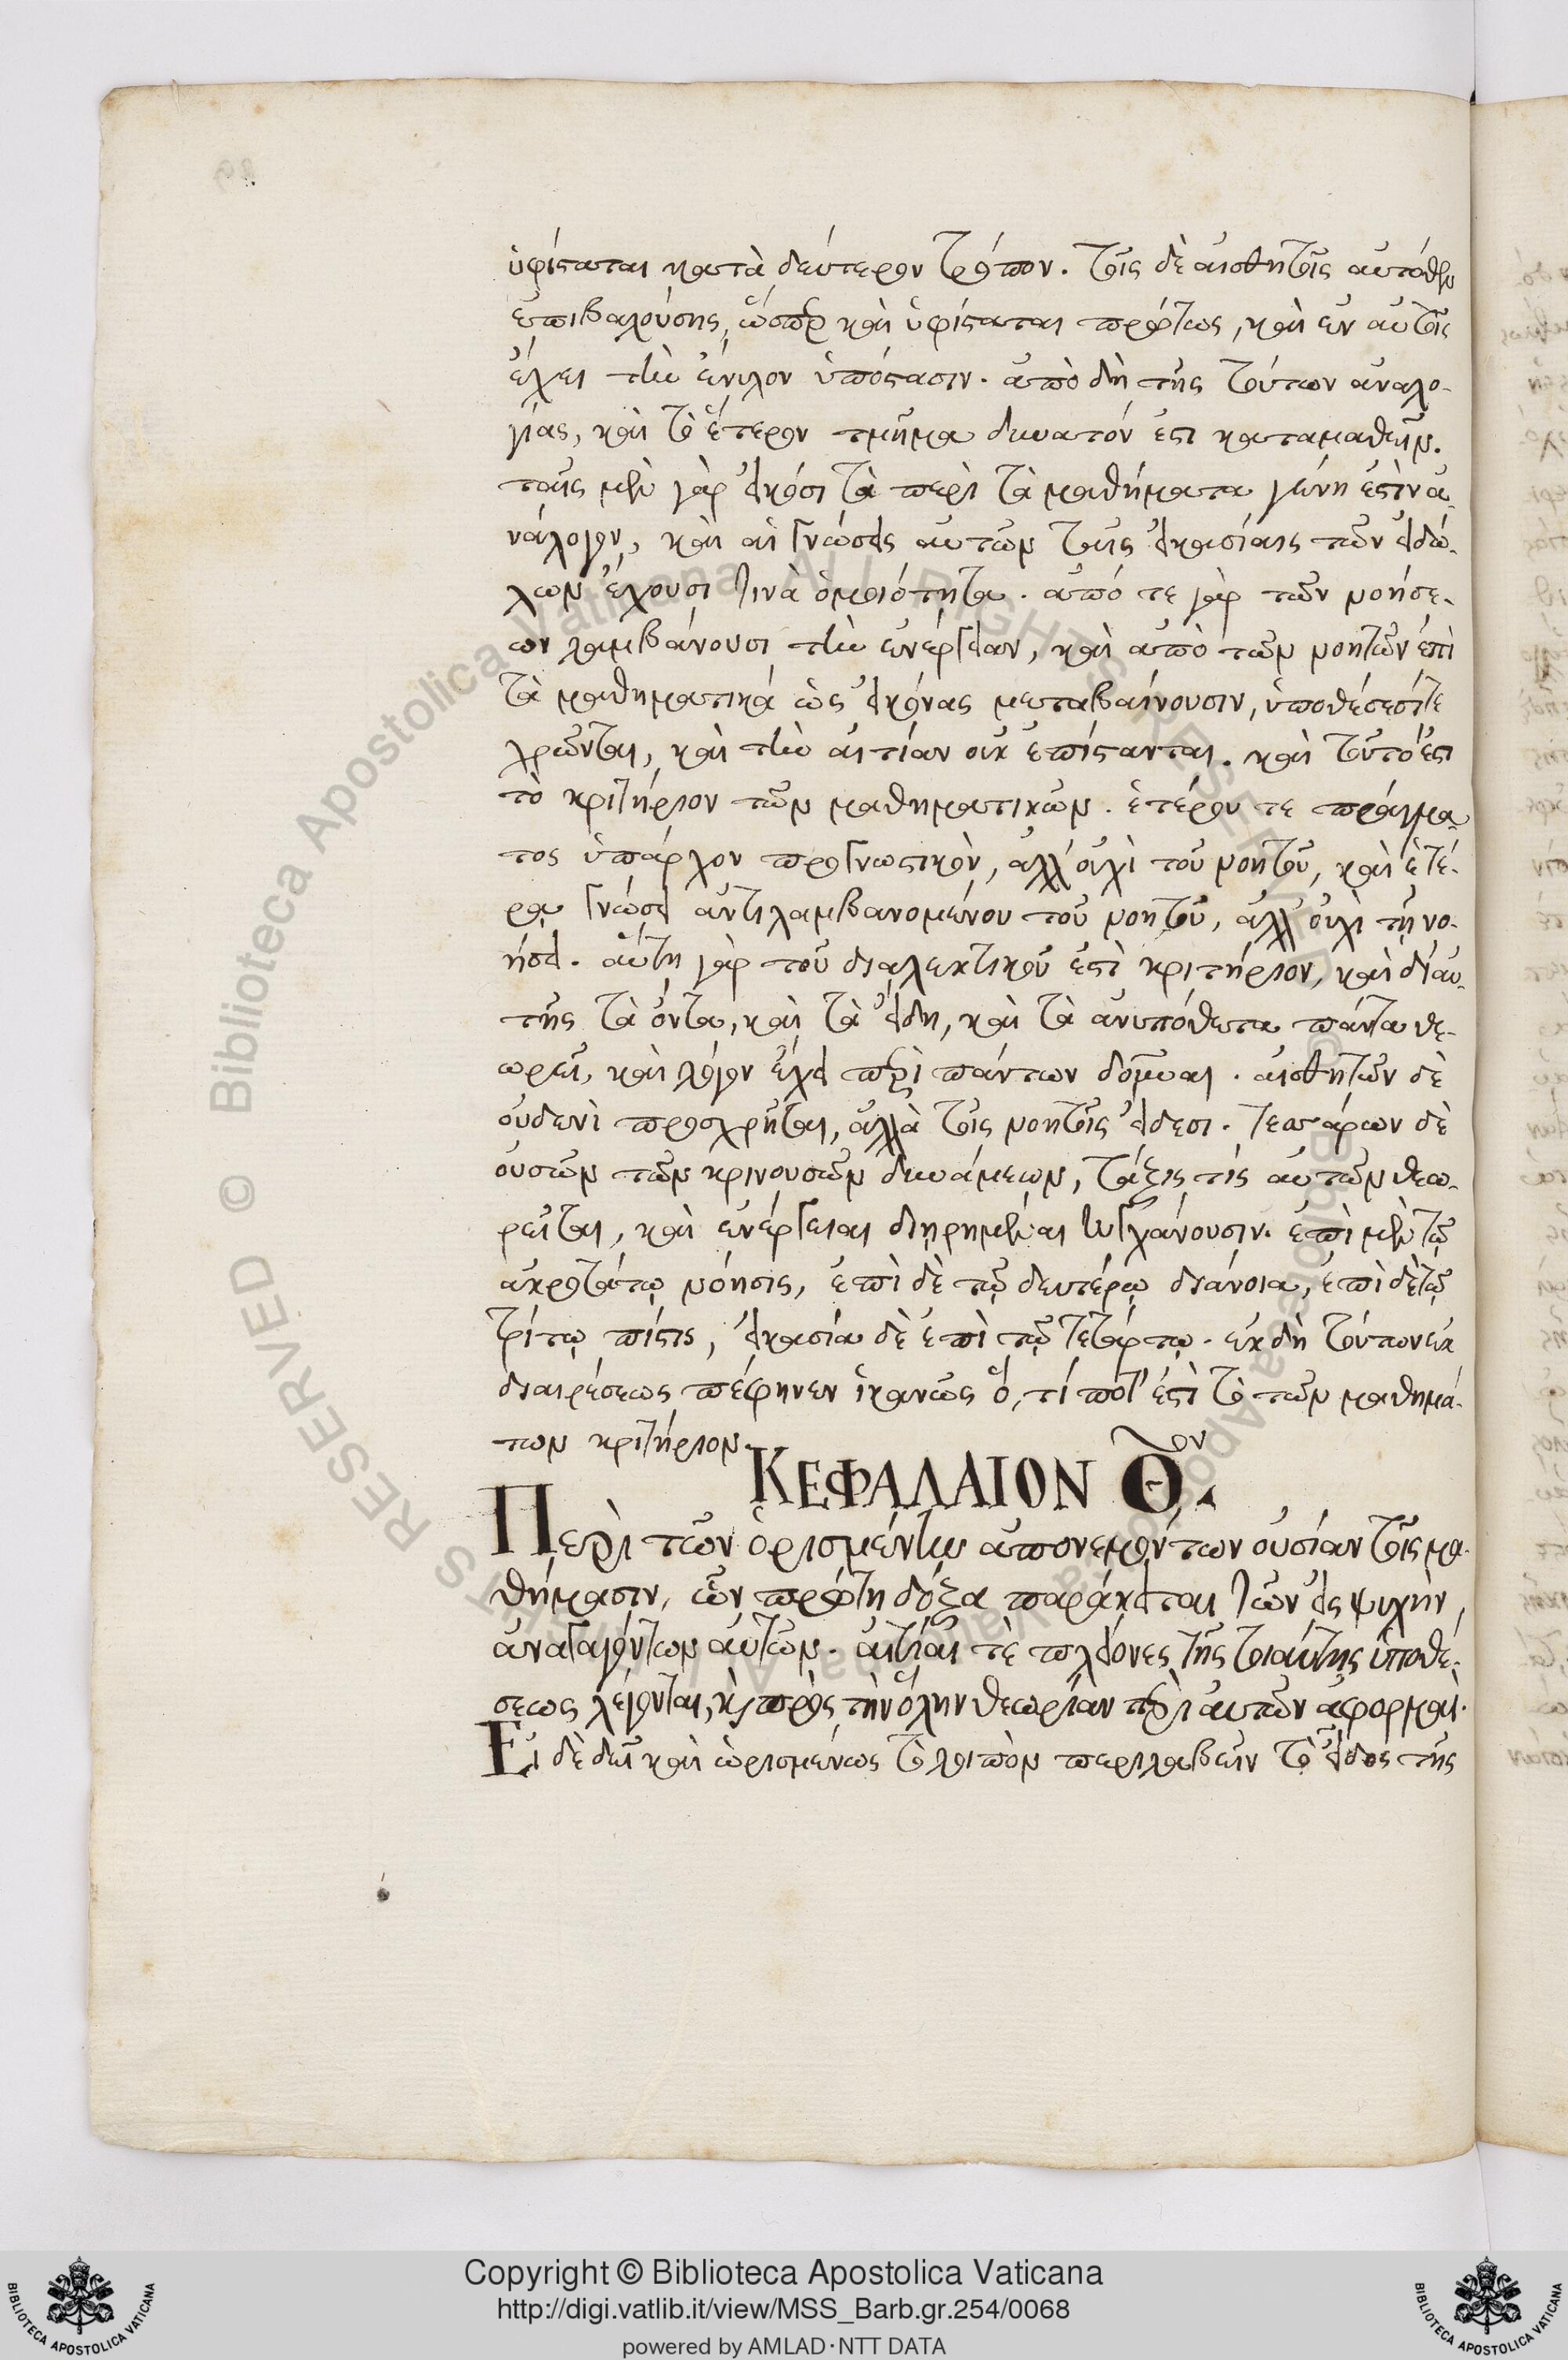 ὑφίσταται κατὰ δεύτερον τρόπον. τοῖς δὲ αἰσθητοῖς αὐτόθεν
ἐπιβαλούσης, ὥσπερ καὶ ὑφίσταται πρώτως, καὶ ἐν αὐτοῖς
ἔχει τὴν ἔνυλον ὑπόστασιν. ἀπὸ δὴ τῆς τούτων ἀναλο-
γίας, καὶ τὸ ἕτερον τμῆμα δυνατόν ἐστι καταμαθεῖν.
ταῖς μὲν γὰρ εἰκόσι τὰ περὶ τὰ μαθήματα γένη ἐστὶν ἀ-
νάλογον, καὶ αἱ γνώσεις αὐτῶν ταῖς εἰκασίαις τῶν εἰδώ-
λων ἔχουσι τινὰ ὁμοιότητα. ἀπό τε γὰρ τῶν νοήσε-
ων λαμβάνουσι τὴν ἐνέργειαν, καὶ ἀπὸ τῶν νοητῶν ἐπὶ
τὰ μαθηματικά ὡς εἰκόνας μεταβαίνουσιν, ὑποθέσεσίτε
χρῶνται, καὶ τὴν αἰτίαν οὐκ ἐπίστανται. καὶ τοῦτό ἐστι
τὸ κριτήριον τῶν μαθηματικῶν. ἑτέρου τε πράγμα-
τος ὑπάρχον προγνωστικὸν, ἀλλ' οὐχὶ τοῦ νοητοῦ, καὶ ἑτέ-
ρᾳ γνώσει ἀντιλαμβανομένου τοῦ νοητοῦ, ἀλλ' οὐχὶ τῇ νο-
ήσει. αὕτη γὰρ τοῦ διαλεκτικοῦ ἐστὶ κριτήριον, καὶ δι' αὐ-
τῆς τὰ ὄντα, καὶ τὰ εἴδη, καὶ τὰ ἀνυπόθετα πάντα θε-
ωρεῖ, καὶ λόγον ἔχει περὶ πάντων δοῦναι. αἰσθητῶν δὲ
οὐδενὶ προσχρῆται, ἀλλὰ τοῖς νοητοῖς εἴδεσι. τεσσάρων δὲ
οὐσῶν τῶν κρινουσῶν δυνάμεων, τάξις τίς αὐτῶν θεω-
ρεῖται, καὶ ἐνέργειαι διῃρημέναι τυγχάνουσιν. ἐπὶ μὲν τῷ
ἀκροτάτῳ νόησις, ἐπὶ δὲ τῷ δευτέρῳ διάνοια, ἐπὶ δὲ τῷ
τρίτῳ πίστις, εἰκασία δὲ ἐπὶ τῷ τετάρτῳ. ἐκ δὴ τούτων ἐκ
διαιρέσεως πέφηνεν ἱκανῶς ὅ, τί ποτ' ἐστὶ τὸ τῶν μαθημά-
των κριτήριον.
ΚΕΦΑΛΑΙΟΝ Θον.
Περὶ τῶν ὁρισμένην ἀπονεμόντων οὐσίαν τοῖς μα-
θήμασιν, ὧν πρώτη δόξα παράκειται τῶν εἰς ψυχὴν,
ἀναγαγόντων αὐτῶν. αἰτίαι τὲ πλείονες τῆς τοιαύτης ὑποθέ-
σεως λέγονται, κ προς τὴν ὅλην θεωρίαν περὶ αὐτῶν ἀφορμαὶ.
Εἰ δὲ δεῖ καὶ ὡρισμένως τὸ λοιπὸν περιλαβεῖν τὸ εἶδος τῆς
Copyright © Biblioteca Apostolica Vaticana
http://digi.vatlib.it/view/MSS_Barb.gr.254/0068
powered by AMLAD·NTT DATA